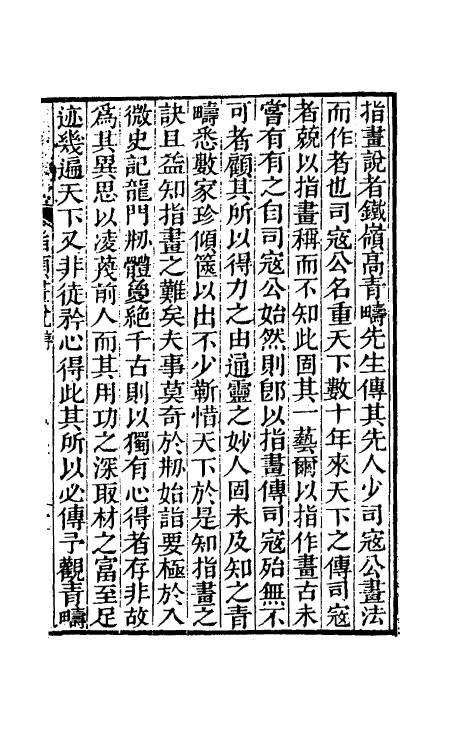 指畫說者鐵嶺高青疇先生傳其先人少司寇公畫法
而作者也司寇公名重天下數十年來天下之傳司寇
者兢以指畫稱而不知此固其一藝爾以指作畫古未
嘗有有之自司寇公始然則卽以指畫傳司寇殆無不
可者顧其所以得力之由通靈之妙人固未及知之青
疇悉數家珍傾篋以出不少靳惜天下於是知指畫之
訣且益知指畫之難矣夫事莫奇於刱始詣要極於入
微史記龍門刱體敻絕千古則以獨有心得者存非故
爲其異思以凌蔑前人而其用功之深取材之富至足
迹幾遍天下又非徒矜心得此其所以必傳予觀青疇